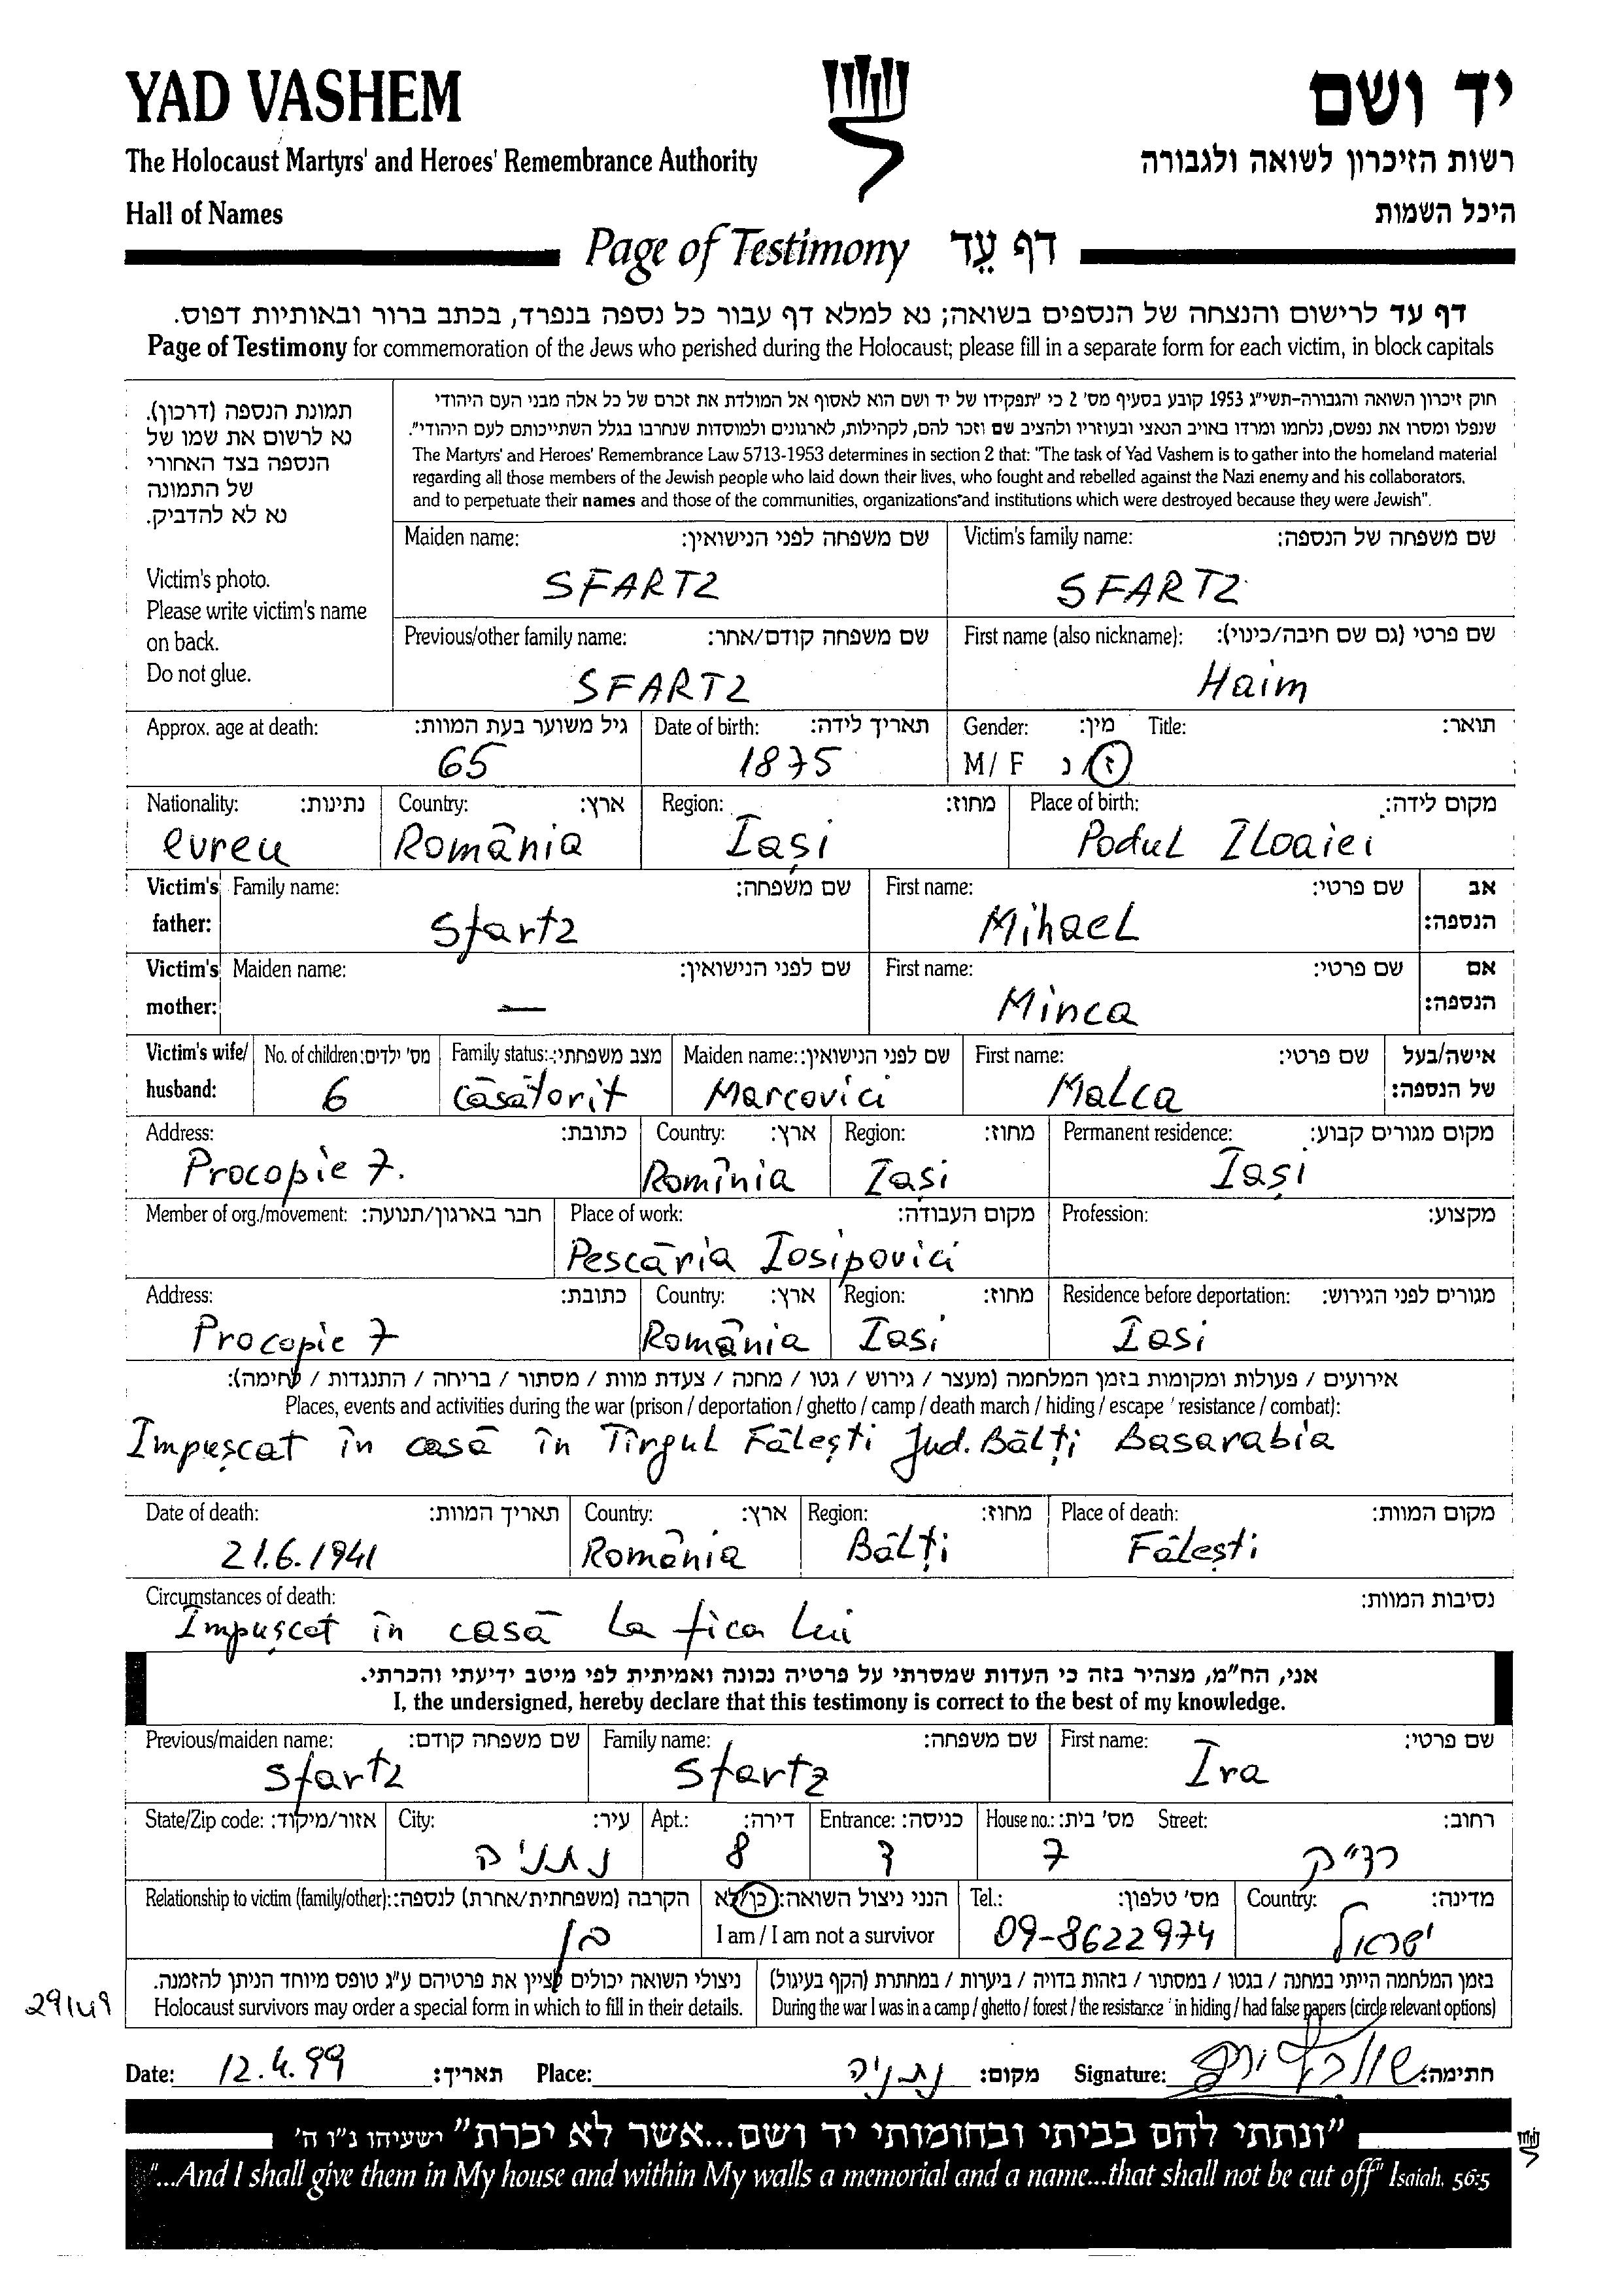 YAD VASHEM
יד ושם
The Holocaust Martyrs' and Heroes' Remembrance Authority
רשות הזיכרון לשואה ולגבורה
Hall of Names
היכל השמות
Page of Testimony דף עֵד
דף עד לרישום והנצחה של הנספים בשואה; נא למלא דף עבור כל נספה בנפרד, בכתב ברור ובאותיות דפוס.
Page of Testimony for commemoration of the Jews who perished during the Holocaust; please fill in a separate form for each victim, in block capitals
תמונת הנספה (דרכון).
נא לרשום את שמו של
הנספה בצד האחורי
של התמונה
נא לא להדביק.
Victim's photo.
Please write victim's name
on back.
Do not glue.
חוק זיכרון השואה והגבורה-תשי"ג 1953 קובע בסעיף מס' 2 כי "תפקידו של יד ושם הוא לאסוף אל המולדת את זכרם של כל אלה מבני העם היהודי
שנפלו ומסרו את נפשם, נלחמו ומרדו באויב הנאצי ובעוזריו ולהציב שם וזכר להם, לקהילות, לארגונים ולמוסדות שנחרבו בגלל השתייכותם לעם היהודי".
The Martyrs' and Heroes' Remembrance Law 5713-1953 determines in section 2 that: "The task of Yad Vashem is to gather into the homeland material
regarding all those members of the Jewish people who laid down their lives, who fought and rebelled against the Nazi enemy and his collaborators,
and to perpetuate their names and those of the communities, organizations and institutions which were destroyed because they were Jewish".
Maiden name: שם משפחה לפני הנישואין: Victim's family name: שם משפחה של הנספה:
SFARTZ SFARTZ
Previous/other family name: שם משפחה קודם/אחר: First name (also nickname): שם פרטי (גם שם חיבה/כינוי):
SFARTZ Haim
Approx. age at death: גיל משוער בעת המוות: Date of birth: תאריך לידה: Gender: מין: Title: תואר:
65 1875 M/ F ז/נ
Nationality: נתינות: Country: ארץ: Region: מחוז: Place of birth: מקום לידה:
evreu România Iași Podul Iloaiei
Victim's father: Family name: שם משפחה: First name: שם פרטי: אב הנספה:
Sfartz Mihael
Victim's mother: Maiden name: שם לפני הנישואין: First name: שם פרטי: אם הנספה:
— Minca
Victim's wife/ husband: No. of children: מס' ילדים: Family status: מצב משפחתי: Maiden name: שם לפני הנישואין: First name: שם פרטי: אישה/בעל של הנספה:
6 Căsătorit Marcovici Malca
Address: כתובת: Country: ארץ: Region: מחוז: Permanent residence: מקום מגורים קבוע:
Procopie 7. Romînia Iași Iași
Member of org./movement: חבר בארגון/תנועה: Place of work: מקום העבודה: Profession: מקצוע:
Pescăria Iosipovici
Address: כתובת: Country: ארץ: Region: מחוז: Residence before deportation: מגורים לפני הגירוש:
Procopie 7 România Iasi Iasi
אירועים / פעולות ומקומות בזמן המלחמה (מעצר / גירוש / גטו / מחנה / צעדת מוות / מסתור / בריחה / התנגדות / לחימה):
Places, events and activities during the war (prison / deportation / ghetto / camp / death march / hiding / escape / resistance / combat):
Impușcat în casă în Tîrgul Fălești Jud. Bălți Basarabia
Date of death: תאריך המוות: Country: ארץ: Region: מחוז: Place of death: מקום המוות:
21.6.1941 România Bălți Fălești
Circumstances of death: נסיבות המוות:
Impușcat în casă la fica lui
אני, הח"מ, מצהיר בזה כי העדות שמסרתי על פרטיה נכונה ואמיתית לפי מיטב ידיעתי והכרתי.
I, the undersigned, hereby declare that this testimony is correct to the best of my knowledge.
Previous/maiden name: שם משפחה קודם: Family name: שם משפחה: First name: שם פרטי:
Sfartz Sfartz Ira
State/Zip code: אזור/מיקוד: City: עיר: Apt.: דירה: Entrance: כניסה: House no.: מס' בית: Street: רחוב:
נתניה 8 ד 7 רד"ק
Relationship to victim (family/other): הקרבה (משפחתית/אחרת) לנספה: הנני ניצול השואה: כן/לא Tel.: מס' טלפון: Country: מדינה:
בן I am / I am not a survivor 09-8622974 ישראל
ניצולי השואה יכולים לציין את פרטיהם ע"ג טופס מיוחד הניתן להזמנה. בזמן המלחמה הייתי במחנה / בגטו / במסתור / בזהות בדויה / ביערות / במחתרת (הקף בעיגול)
Holocaust survivors may order a special form in which to fill in their details. During the war I was in a camp / ghetto / forest / the resistance / in hiding / had false papers (circle relevant options)
Date: 12.4.99 תאריך: Place: נתניה מקום: Signature: חתימה:
"ונתתי להם בביתי ובחומותי יד ושם...אשר לא יכרת" ישעיהו נ"ו ה'
"...And I shall give them in My house and within My walls a memorial and a name...that shall not be cut off" Isaiah, 56:5